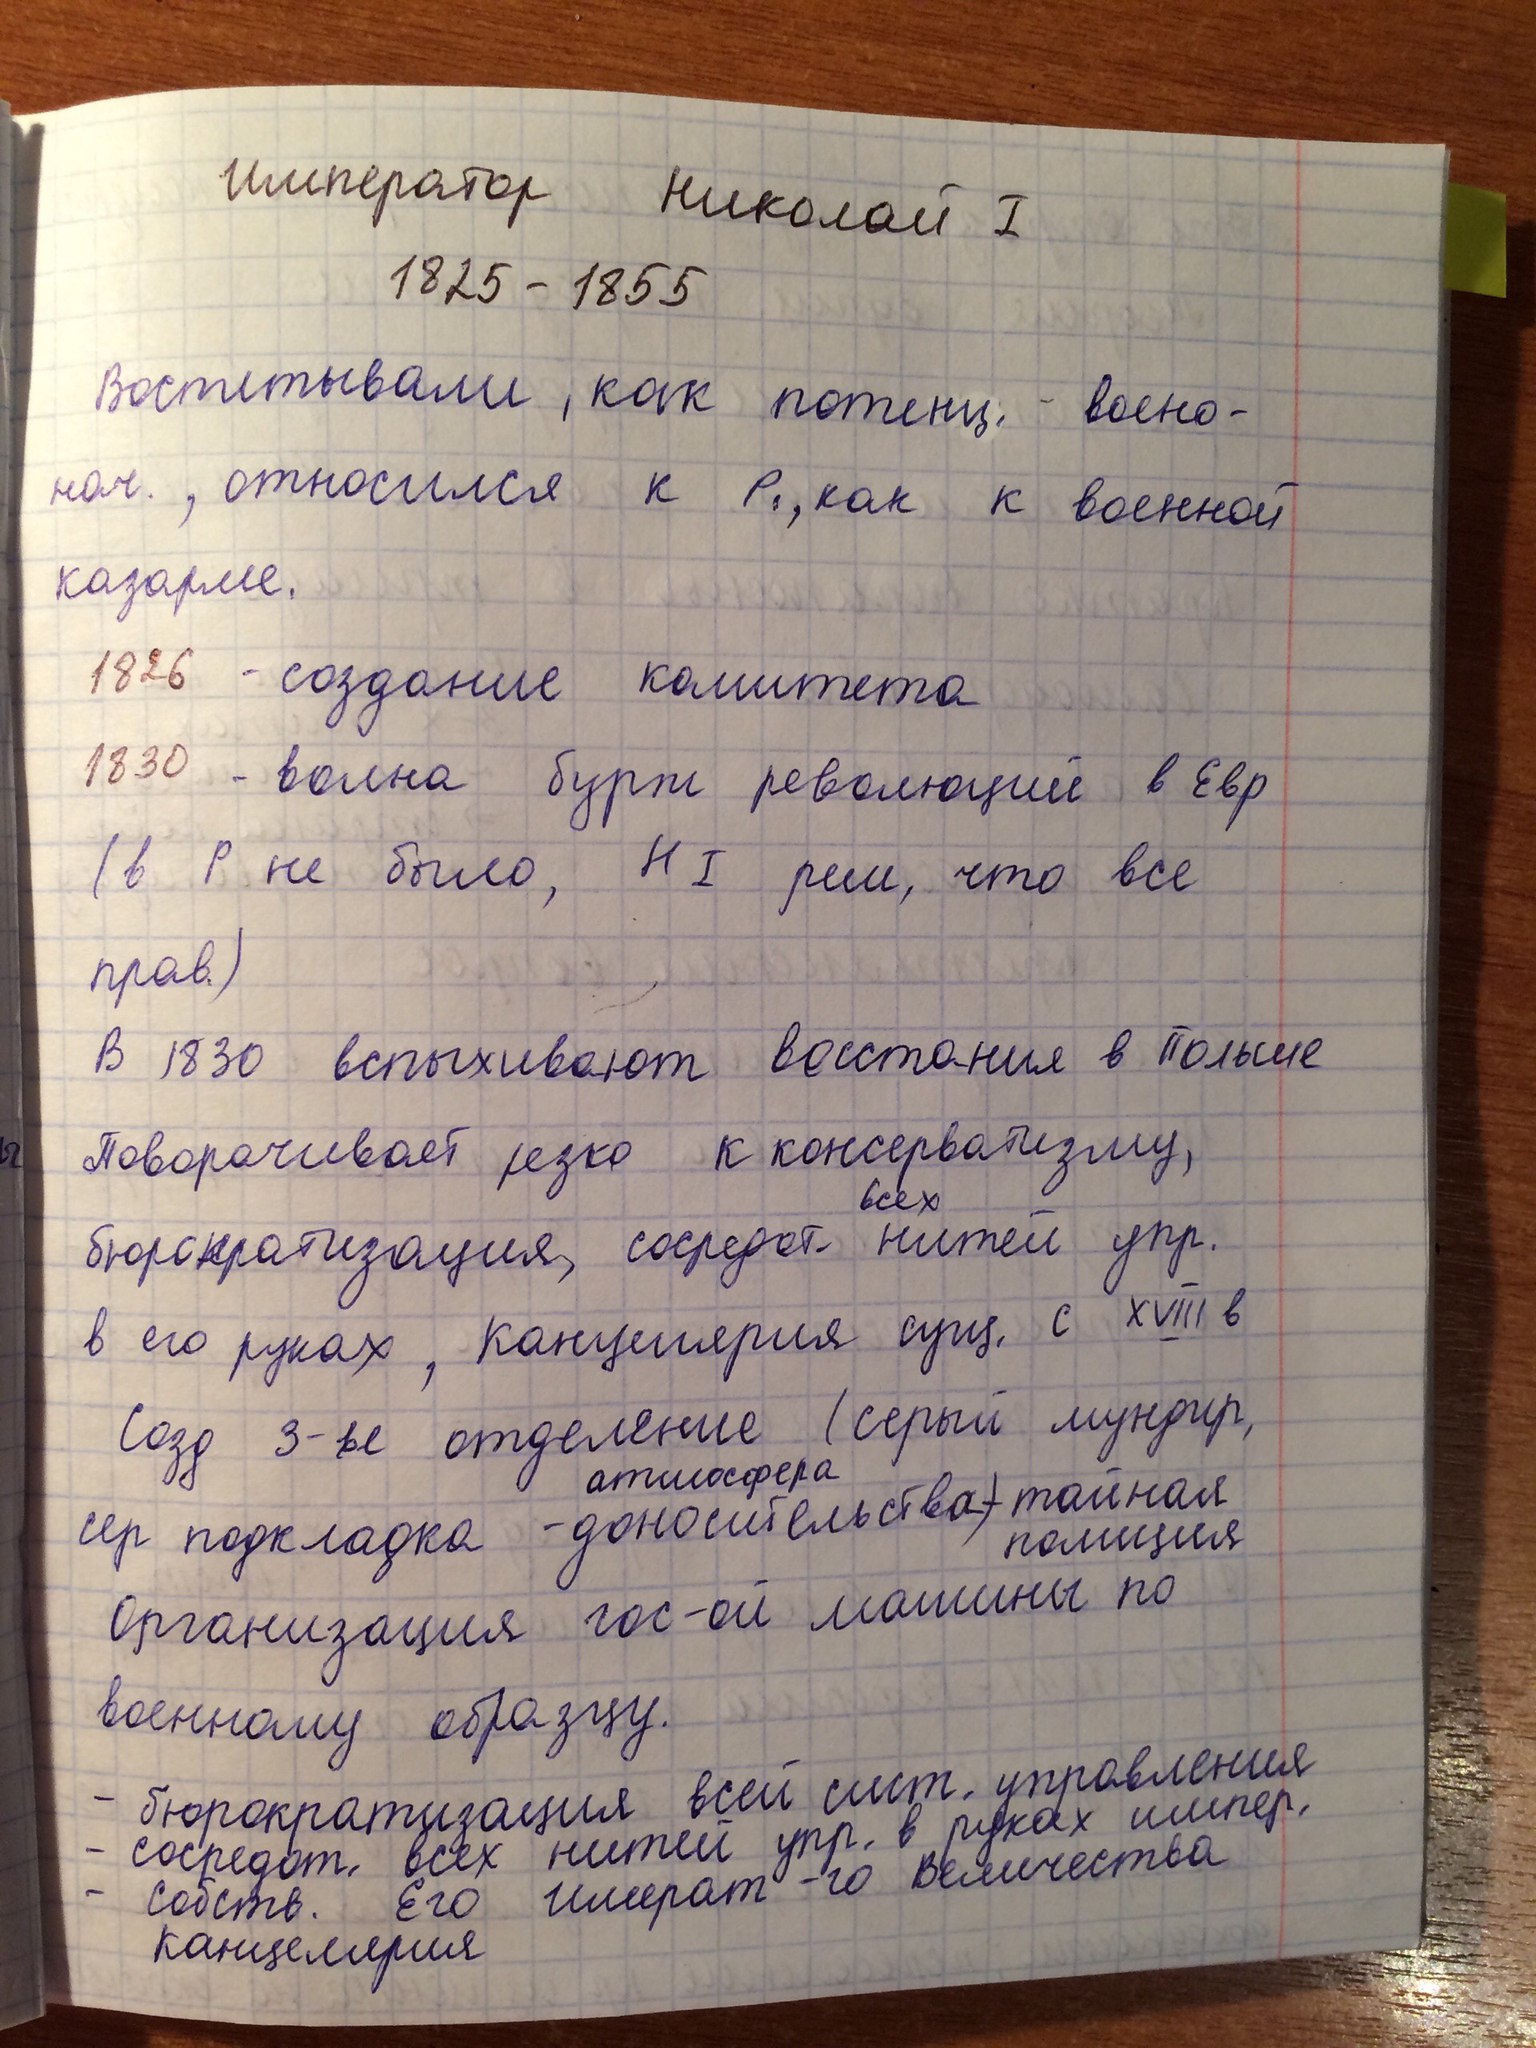 Император Николай I
1825 - 1855
Воспитывали, как потенц. воено-
нач., относился к Р., как к военной
казарме.
1826 - создание комитета
1830 - волна бурж революций в Евр
(в Р не было, Н I реш, что все
прав.)
В 1830 вспыхивают восстания в Польше
Поворачивает резко к консерватизму,
всех
бюрократизация, сосредот. нитей упр.
в его руках, Канцелярия сущ. с XVIII в
Созд 3-ье отделение (серый мундир,
атмосфера
сер подкладка - доносительства) тайная
полиция
Организация гос-ой машины по
военному образцу.
- бюрократизация всей сист. управления
- сосредот. всех нитей упр. в руках импер.
- Собств. Его Имерат-го Величества
Канцелярия